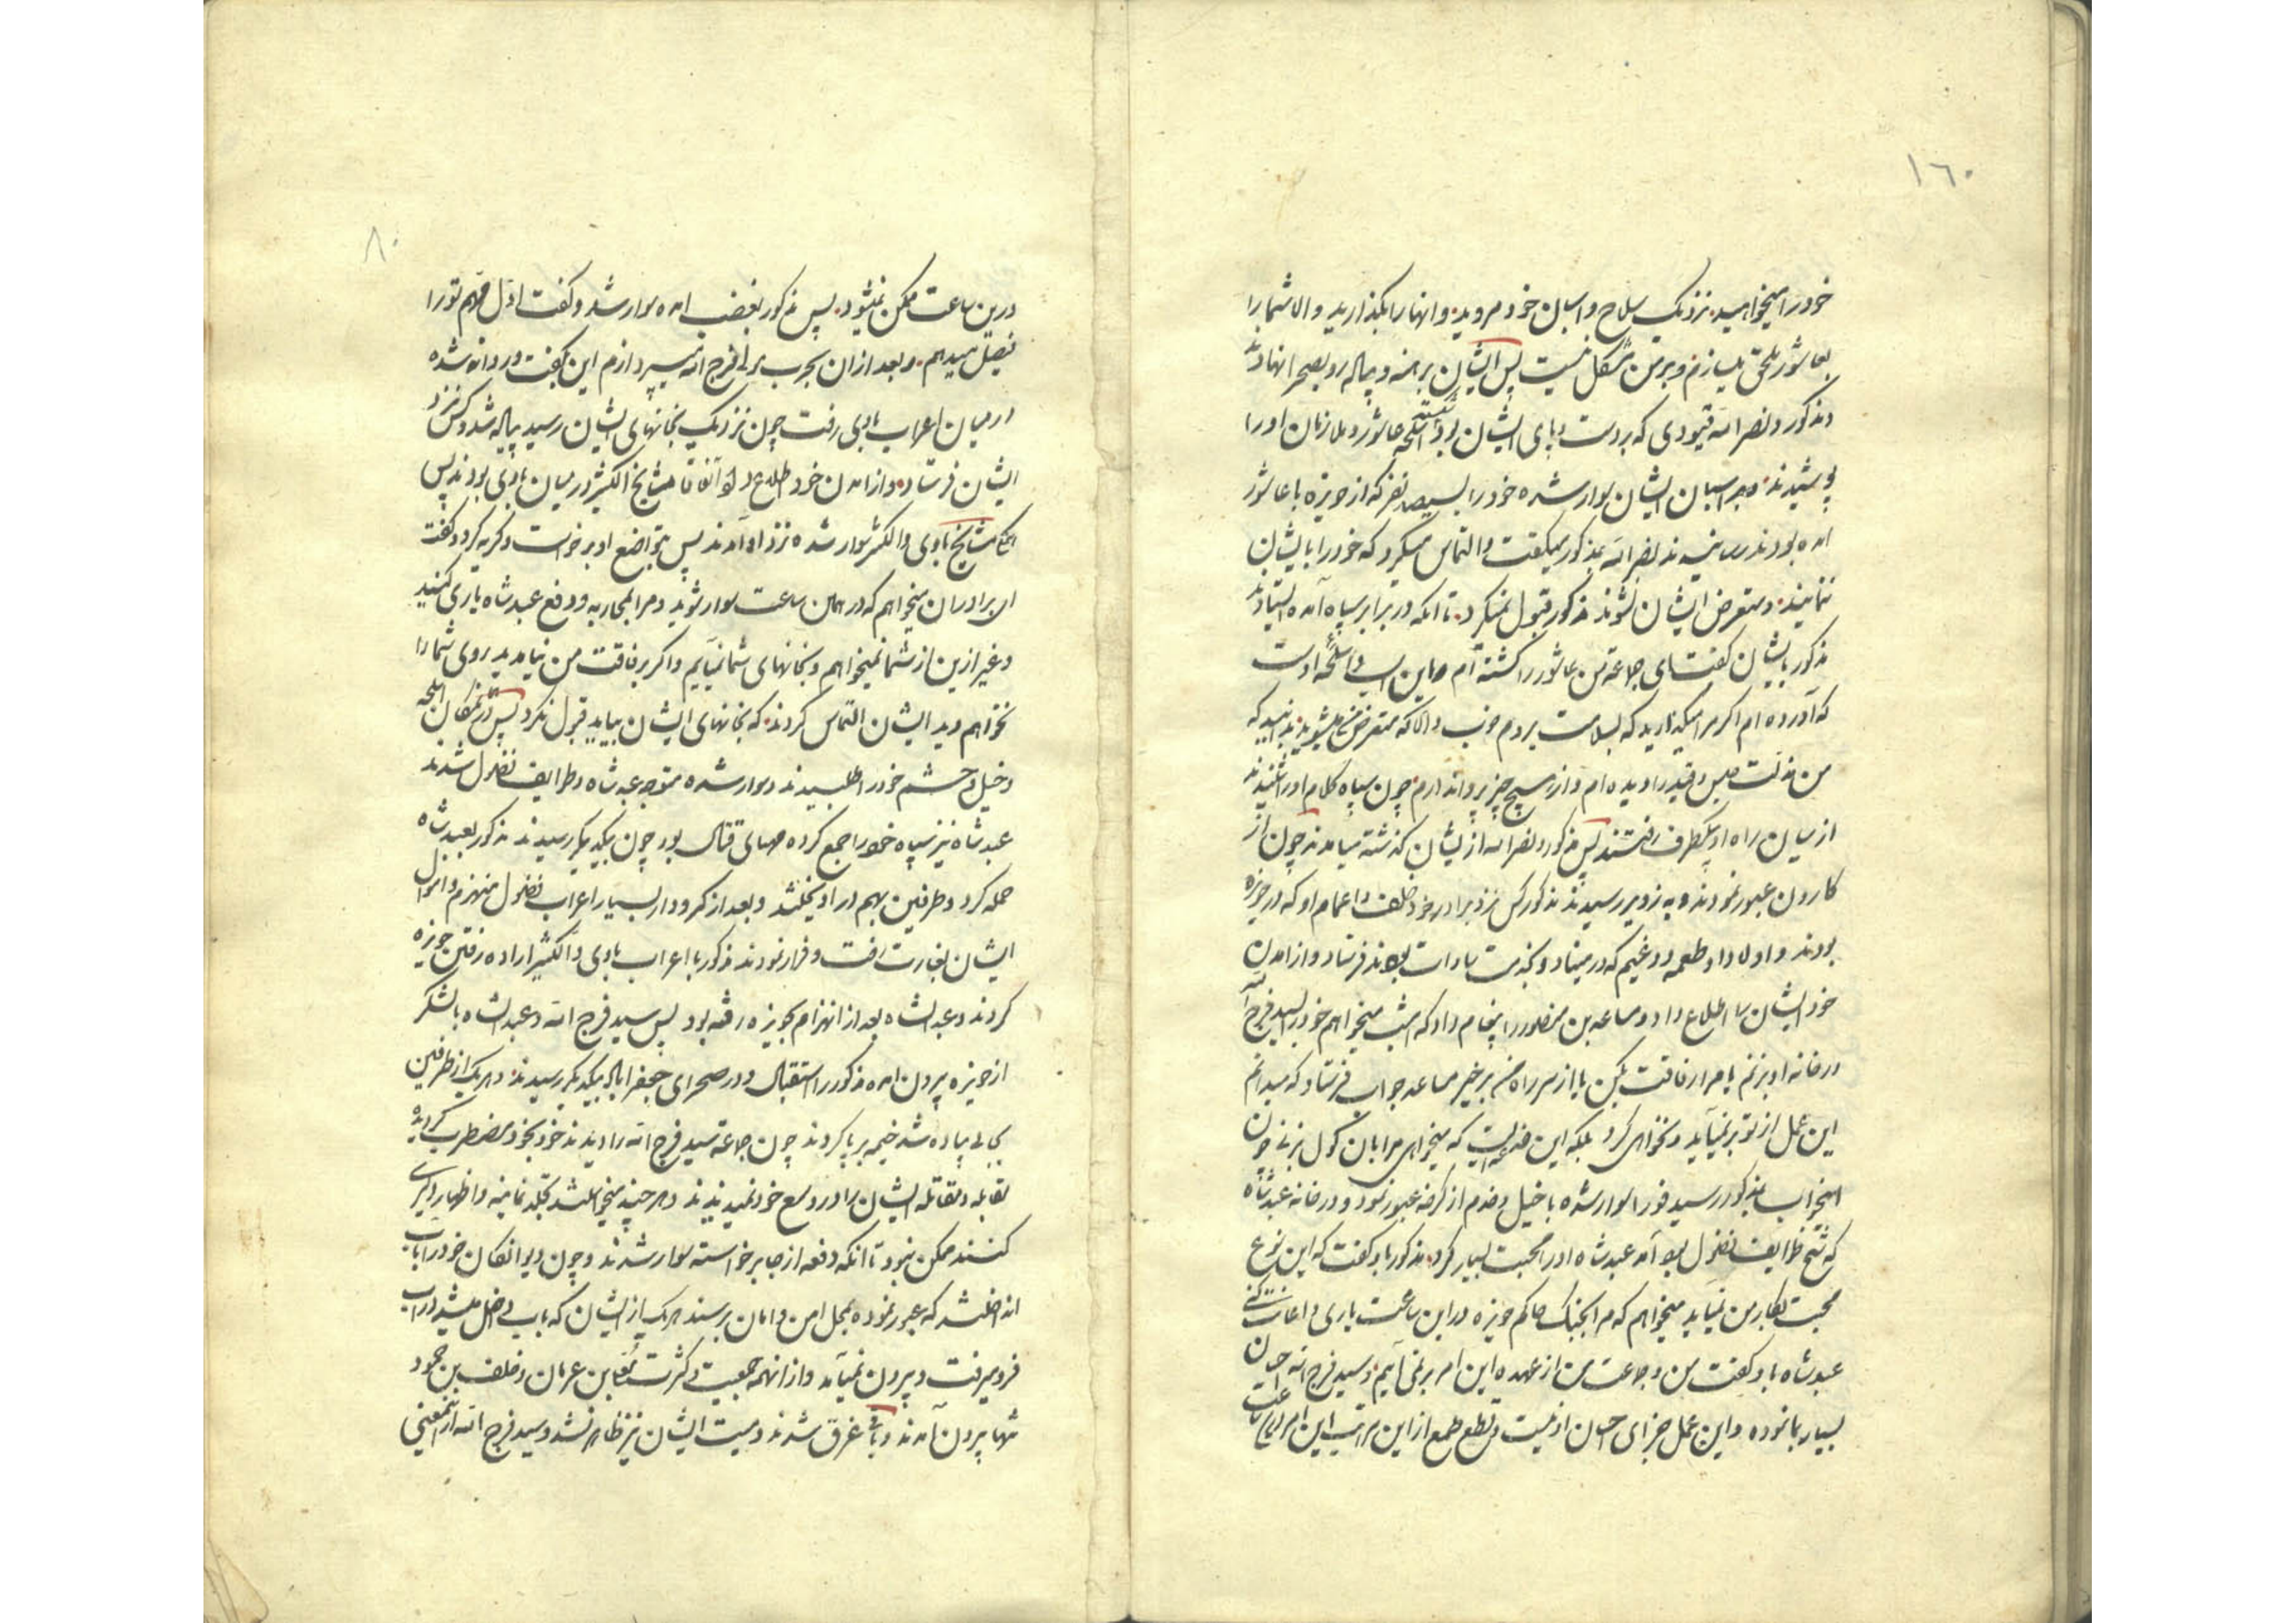 ١٦٠
خود را میخواهید نزدیک سلاح و اسبان خود مروید و انها را بگذارید و الا شما را
بعاشور ملحق میسازم و بر من مشکل نیست پس ایشان برهنه و پیاله رو بصحرا نهادند
و مذکور و نصرالله قیودی که بر دست و پای ایشان بود شکسته اسلحه عاشور و ملازمان او را
پوشیدند و بر اسبان ایشان سوار شده خود را بسیصد نفر که از حویزه با عاشور
امده بودند رسانیدند نصرالله بمذکور میگفت و التماس میکرد که خود را بایشان
ننمایند و متعرض ایشان نشوند مذکور قبول نمیکرد تا انکه در برابر سپاه آمده ایستادند
مذکور بایشان گفت ای جماعة من عاشور را کشته ام و این اسب و اسلحه اوست
که آورده ام اگر مرا میگذارید که بسلامت بروم خوب و الا که متعرض من میشوید بدانید که
من مذلت حبس و قید را دیده ام و از هیچ چیز پروا ندارم چون سپاه کلام او را شنیدند
از میان راه او بیکطرف رفتند پس مذکور و نصرالله از ایشان گذشته میامدند چون از
کارون عبور نمودند و به زویر رسیدند مذکور کس نزد برادر خود خلف و اعمام او که در حویزه
بودند و اولاد او طعمه و دغیم که در میناو و بخدمت سادات بودند فرستاد و از امدن
خود ایشان را اطلاع داد و مساعد بن منصور را پیغام داد که امشب میخواهم خود را بسید فرج الله
در خانه او بزنم یا مرا رفاقت بکن یا از سر راه من برخیز مساعد جواب فرستاد که میدانم
این عمل از تو بر نمیآید و نخواهی کرد بلکه این خدعه ایست که میخواهی مرا بان گول بزنی چون
اینجواب بمذکور رسید فورا سوار شده با خیل و خدم از کرخه عبور نمود و در خانه عبد شاه
که شیخ طوایف فضول بود آمد عبد شاه او را محبت بسیار کرد مذکور باو گفت که این نوع
محبت بکار من نمیاید میخواهم که مرا بجنک حاکم حویزه در این ساعت یاری و اعانت کنی
عبد شاه باو گفت من و جماعت من از عهده این امر بر نمیآییم و سید فرج الله احسان
بسیار بما نموده و این عمل جزای احسان او نیست و قطع طمع از این مراتب این امر در این ساعت
٨٠
درین ساعت ممکن نمیشود پس مذکور بغضب امده سوار شد و گفت اول مهم تو را
فیصل میدهم و بعد ازان بحرب سید فرج الله میپردازم این بگفت و روانه شده
در میان اعراب باوی رفت چون نزدیک بخانهای ایشان رسید پیاله شد و کس نزد
ایشان فرستاد و از امدن خود اطلاع داد اتفاقا مشایخ الکثیر در میان باوی بودند پس
مشایخ باوی و الکثیر سوار شده نزد او آمدند پس بتواضع او برخواست و گریه کرد و گفت
ای برادران میخواهم که در همین ساعت سوار شوید و مرا بمحاربه و دفع عبد شاه یاری کنید
و غیر ازین از شما نمیخواهم و بخانهای شما نمیآیم و اگر برفاقت من نیامدید روی شما را
نخواهم دید ایشان التماس کردند که بخانهای ایشان بیاید قبول نکرد پس همگان اسلحه
و خیل و حشم خود را طلبیدند و سوار شده متوجه عبد شاه و طوایف فضول شدند
عبد شاه نیز سپاه خود را جمع کرده مهیای قتال بود چون بیکدیگر رسیدند مذکور بعبد شاه
حمله کرد و طرفین بهم در اویختند و بعد از کرودار بسیار اعراب فضول منهزم و اموال
ایشان بغارت رفت و فرار نمودند مذکور با اعراب باوی و الکثیر اراده رفتن حویزه
کردند و عبد الشاه بعد از انهزام بحویزه رفته بود پس سید فرج الله و عبد الشاه با لشکر
از حویزه بیرون امده مذکور را استقبال و در صحرای جعفر اباد بیکدیگر رسیدند و هر یک از طرفین
بجائی پیاده شده خیمه بر پا کردند چون جماعة سید فرج الله را دیدند خود بخود مضطرب گردیده
مقابله و مقاتله ایشان را در وسع خود نمیدیدند و هر چند میخواستند تجلد نمایند و اظهار دلیری
کنند ممکن نبود تا انکه دفعه از جا برخواسته سوار شدند و چون دیوانگان خود را باب
انداختند که عبور نموده بمحل امن و امان برسند هر یک از ایشان که باب داخل میشد در اب
فرو میرفت و بیرون نمیآمد و از انهمه جمعیت و کثرت بن عرمان و خلف بن حمود
تنها بیرون آمدند و باقی غرق شدند و میت ایشان نیز ظاهر نشد و سید فرج الله از اینمعنی